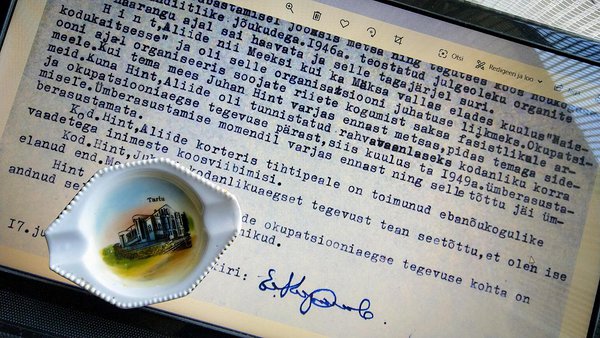 Otsi
Redigeeri ja loo
metsa ning tegutses koos nõuko
jõukudega. 1946a. teostatud julgeoleku organite
haarangu ajal sai haavata ja selle tagajärjel suri.
Hint, Aliide nii Meeksi kui ka Mäksa vallas elades kuulus "Nais-
kodukaitsesse" ja oli selle organisatsiooni juhatuse liikmeks. Okupatsi-
ooni ajal organiseeris soojate riiete kogumist saksa fasistlikele ar-
meele. Kui tema mees Juhan Hint varjas ennast metsas, pidas temaga side-
meid. Kuna Hint, Aliide oli tunnistatud rahvavaenlaseks kodanliku korra
ja okupatsiooniaegse tegevuse pärast, siis kuulus ta 1949a. ümberasusta-
misele. Ümberasustamise momendil varjas ennast ning selle tõttu jäi üm-
berasustamata.
Kod. Hint, Aliide korteris tihtipeale on toimunud ebanõukogulike
vaadetega inimeste koosviibimisi.
Kod. Hint, Ju kodanlikuaegset tegevust tean seetõttu, et olen ise
elanud end. Me
Hint de okupatsiooniaegse tegevuse kohta on
andnud sel nikud.
17. ju
iri:
Tartu